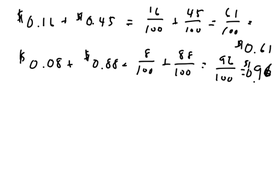 $0.16 + $0.45 = 16/100 + 45/100 = 61/100 = $0.61
$0.08 + $0.88 = 8/100 + 88/100 = 96/100 = $0.96